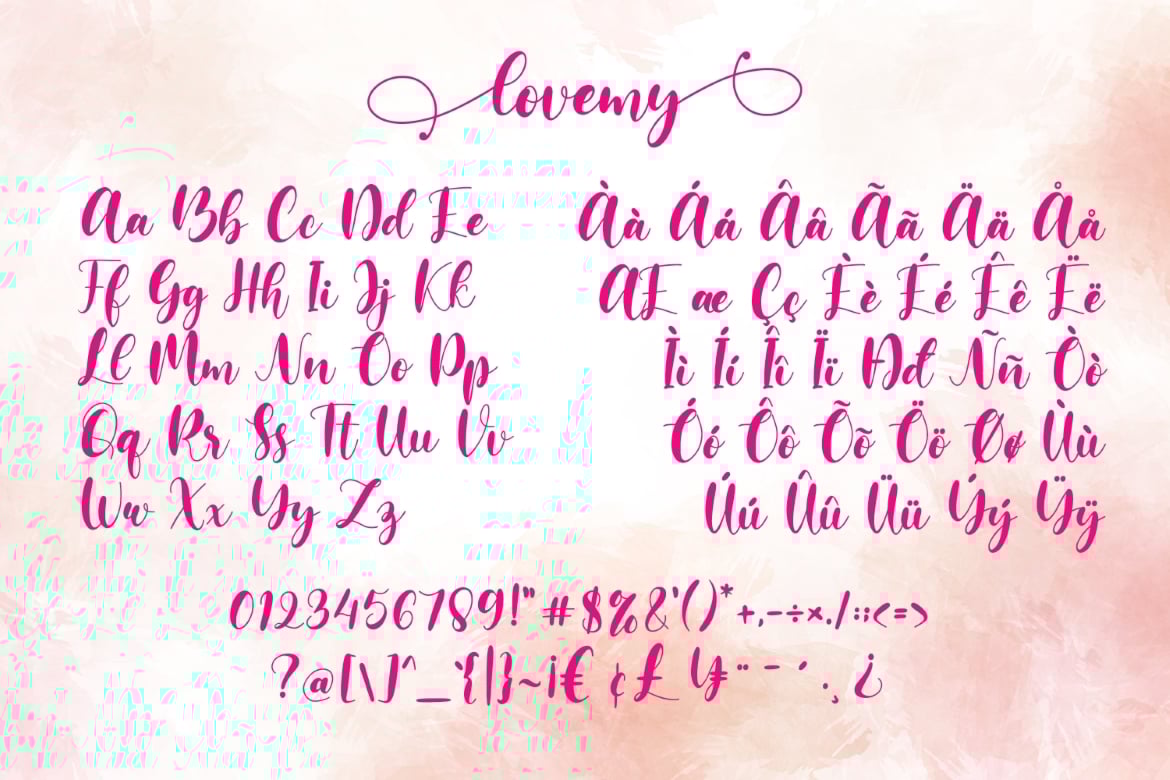 lovemy
Aa Bb Cc Dd Ee
Ff Gg Hh Ii Jj Kk
Ll Mm Nn Oo Pp
Qq Rr Ss Tt Uu Vv
Ww Xx Yy Zz
Àà Áá Ââ Ãã Ää Åå
Æ æ Çç Èè Éé Êê Ëë
Ìì Íí Îî Ïï Đđ Ññ Òò
Óó Ôô Õõ Öö Øø Ùù
Úú Ûû Üü Ýý Ÿÿ
0123456789!"#$%&'()*+,-÷×./:;<=>
?@[\]^_`{|}~¡€ ¢£ ¥ ¨ ¯ ´ · ¸ ¿